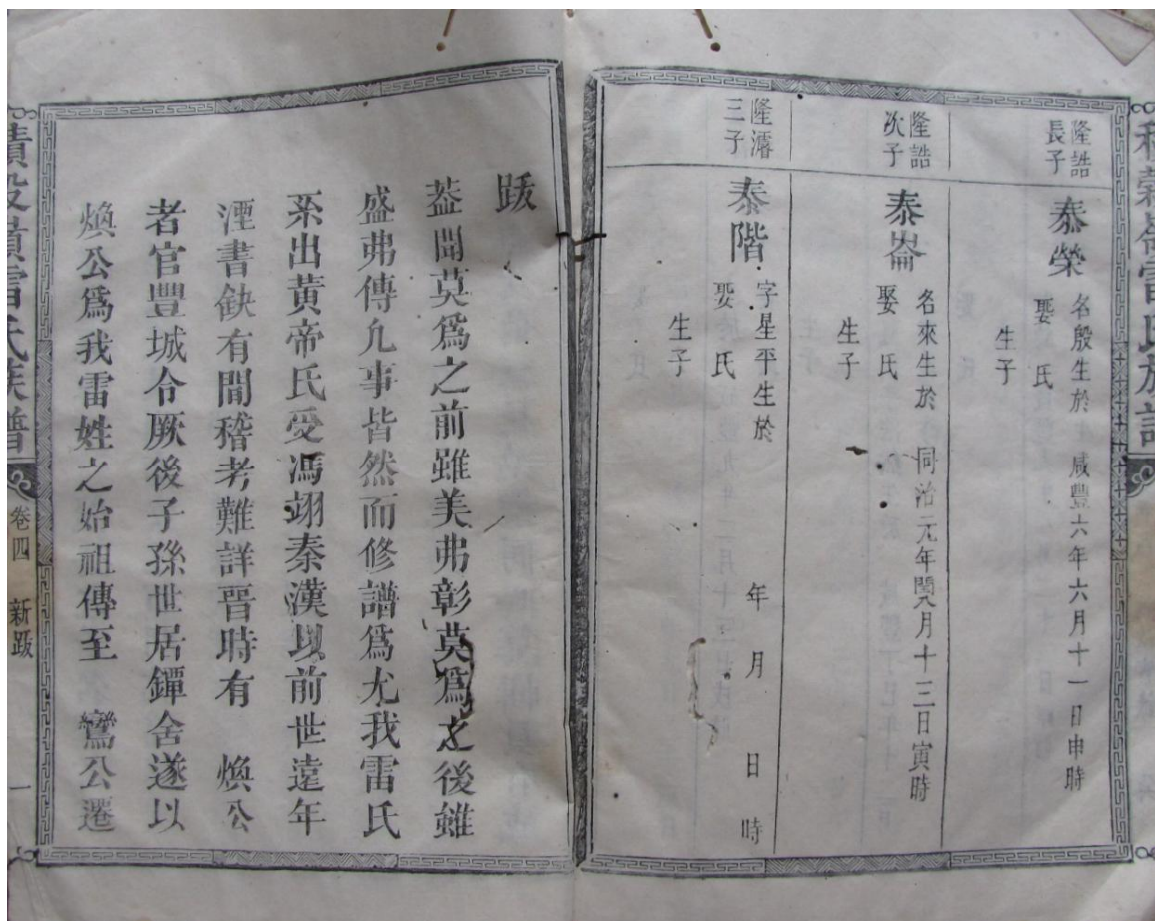 隆誥長子
泰榮
名殷生於咸豐六年六月十一日申時
娶 氏
生子
隆誥次子
泰崙
名來生於 同治元年閏八月十三日寅時
娶 氏
生子
隆濬三子
泰階
字星平生於 年 月 日 時
娶 氏
生子
跋
葢聞莫爲之前雖美弗彰莫爲之後雖
盛弗傳凡事皆然而修譜爲尤我雷氏
系出黃帝氏受馮翊秦漢以前世遠年
湮書缺有間稽考難詳晉時有 煥公
者官豐城令厥後子孫世居鐔舍遂以
煥公爲我雷姓之始祖傳至 鸞公遷
積穀嶺雷氏族譜
卷四 新跋 一